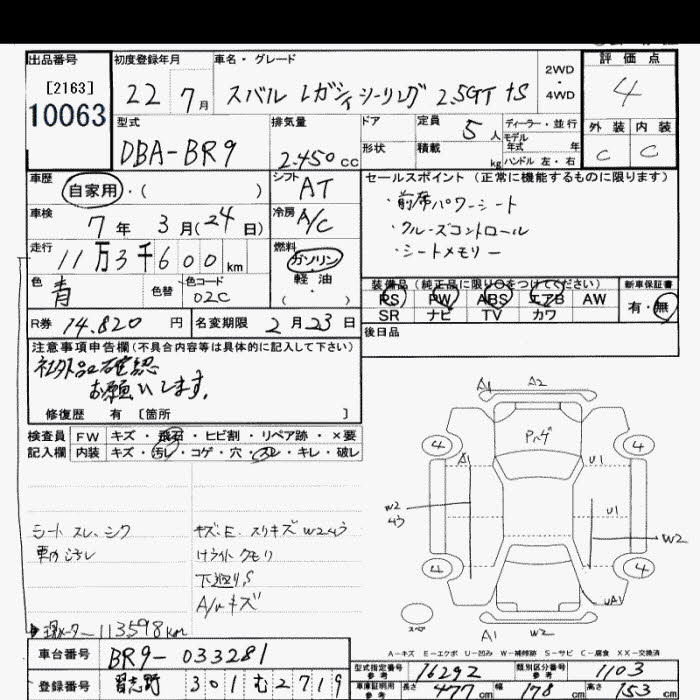 出品番号 初度登録年月 車名・グレード 評価点
[2163] 22年 7月 スバル レガシィツーリング 2.5GT +S 2WD・4WD 4
10063
型式 排気量 ドア 定員 5人 ディーラー・並行 外装 内装
DBA-BR9 2.450cc 形状 積載 kg モデル年式 年 ハンドル 左・右 C C
車歴 シフト セールスポイント (正常に機能するものに限ります)
自家用・( ) AT ・前席パワーシート
車検 冷房 ・クルーズコントロール
7年 3月(24日) A/C ・シートメモリー
走行 燃料
11万3千600km ガソリン
軽油
・( )
色 色替 色コード 装備品 (純正品に限り○をつけてください) 新車保証書
青 02C PS PW ABS エアB AW 有・無
SR ナビ TV カワ
R券 14.820円 名変期限 2月23日 後日品
注意事項申告欄(不具合内容等は具体的に記入して下さい)
社外品確認
お願いします。
修復歴 有 〔箇所 〕
検査員 FW キズ・飛石・ヒビ割・リペア跡・×要
記入欄 内装 キズ・汚レ・コゲ・穴・スレ・キレ・破レ
A1 A2
Pハゲ
4 4
A1 U1
W2 U1
W2
4 4
UA1
スペア
A1 W2
シート スレ、シワ キズ、E、スリキズ W2
車内汚レ ライト クモリ
下廻りS
A/Wキズ
113598km
A-キズ E-エクボ U-凹み W-補修跡 S-サビ C-腐食 XX-交換済
車台番号 BR9-033281 型式指定番号 参考 16292 類別区分番号 参考 1103
登録番号 習志野 301 む 2719 車庫証明用 参考 長さ 477cm 幅 178cm 高さ 153cm